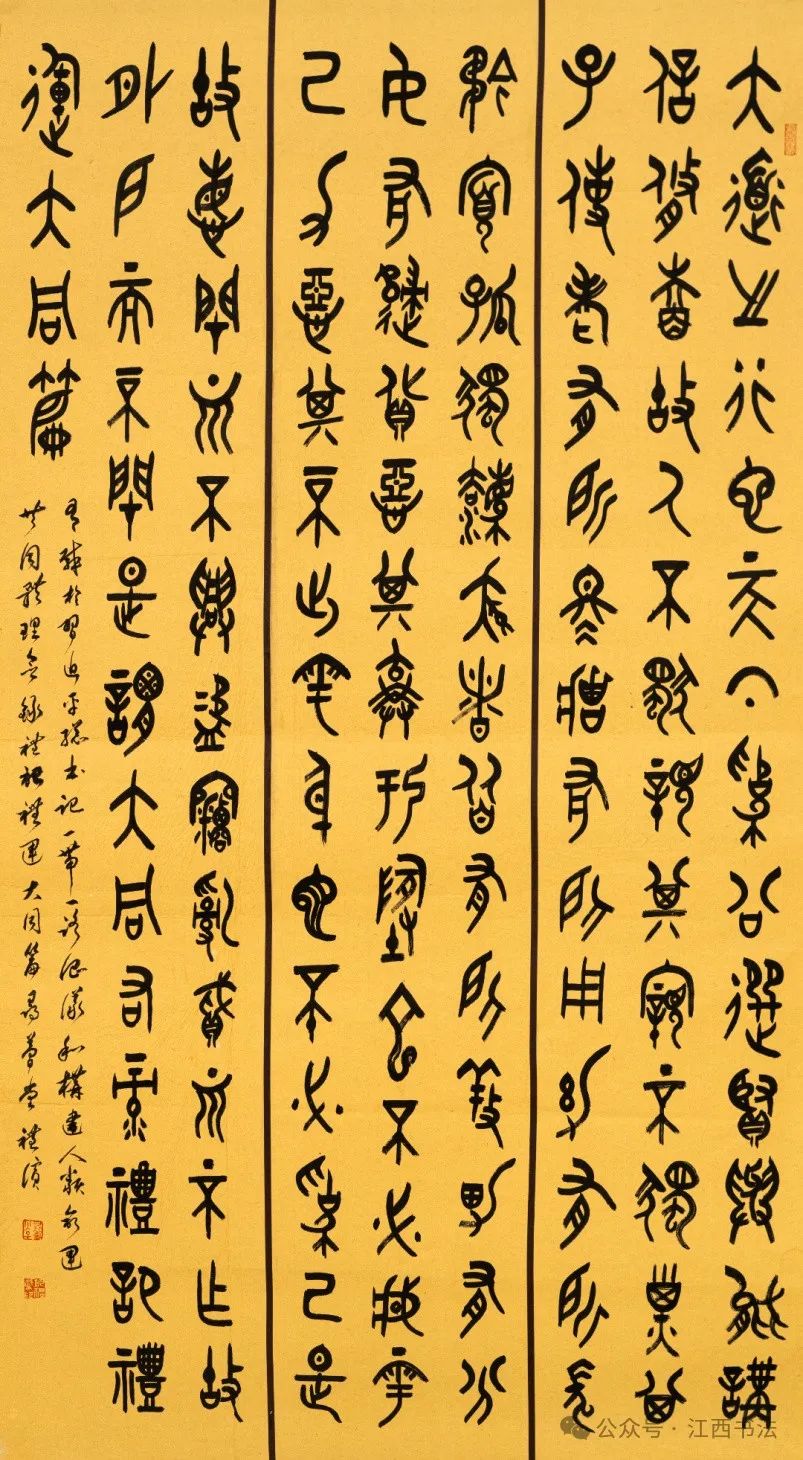 大道之行也天下為公選賢與能講
信脩睦故人不獨親其親不獨子其
子使老有所終壯有所用幼有所長
矜寡孤獨廢疾者皆有所養男有分
女有歸貨惡其棄於地也不必藏於
己力惡其不出於身也不必為己是
故謀閉而不興盜竊亂賊而不作故
外戶而不閉是謂大同右彔禮記禮
運大同篇
有感於習近平總書記一帶一路倡議和構建人類命運
共同體理念錄禮記禮運大同篇尋夢堂
公众号·江西书法